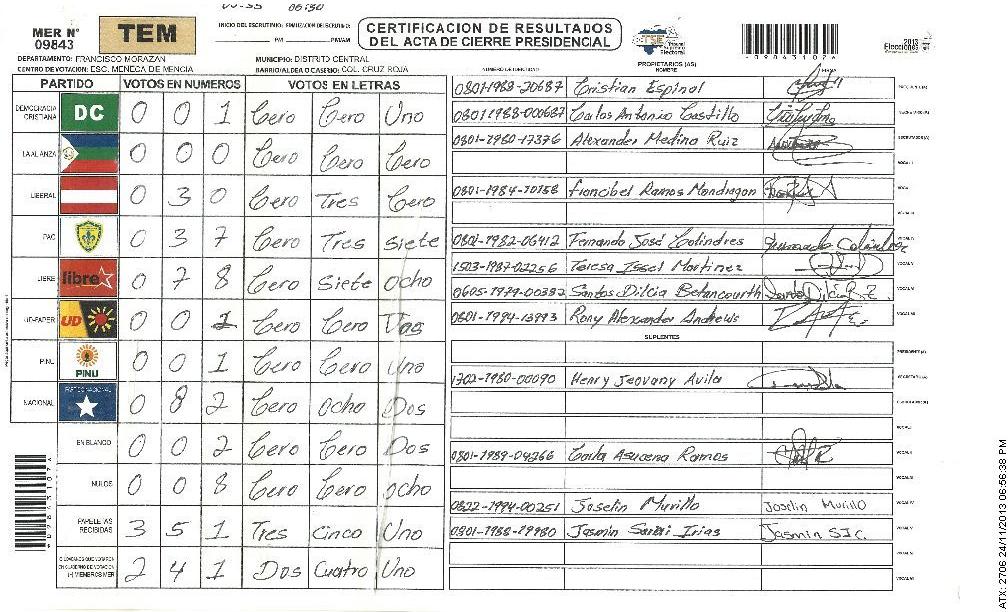 06:50
MER N° 09843
TEM
CERTIFICACION DE RESULTADOS
DEL ACTA DE CIERRE PRESIDENCIAL
DEPARTAMENTO: FRANCISCO MORAZAN
MUNICIPIO: DISTRITO CENTRAL
CENTRO DE VOTACION: ESC. MENECA DE MENCIA
BARRIO/ALDEA O CASERIO: COL. CRUZ ROJA
TSE Tribunal Supremo Electoral
2013 Elecciones
098431026
PROPIETARIOS (AS)
NUMERO DE IDENTIDAD NOMBRE FIRMA
PARTIDO VOTOS EN NUMEROS VOTOS EN LETRAS
DEMOCRACIA CRISTIANA DC 0 0 1 Cero Cero Uno
LA ALIANZA 0 0 0 Cero Cero Cero
LIBERAL 0 3 0 Cero Tres Cero
PAC 0 3 7 Cero Tres Siete
LIBRE libre 0 7 8 Cero Siete Ocho
UD-FAPER UD 0 0 1 Cero Cero Uno
PINU PINU 0 0 1 Cero Cero Uno
NACIONAL PARTIDO NACIONAL 0 8 2 Cero Ocho Dos
EN BLANCO 0 0 2 Cero Cero Dos
NULOS 0 0 8 Cero Cero Ocho
PAPELETAS RECIBIDAS 3 5 1 Tres Cinco Uno
CIUDADANOS QUE VOTARON EN CUADERNO DE VOTACION (+) MIEMBROS MER 2 4 1 Dos Cuatro Uno
0801-1989-20687 Cristian Espinal
0801 1988-000687 Carlos Antonio Castillo
0801-1980-17376 Alexander Medina Ruiz
0801-1984-10158 Francibel Ramos Mondragon
0801-1982-06412 Fernando José Colindres
1503-1987-02256 Teresa Issel Martinez
0605-1979-00382 Santos Dilcia Betancourth
0801-1994-13993 Rony Alexander Andrews
SUPLENTES
1702-1980-00090 Henry Jeovany Avila
0801-1989-04266 Carla Asucena Ramos
0822-1994-00251 Joselin Murillo Joselin Murillo
0801-1988-19980 Jasmin Irias Jasmin
ATX: 2706 24/11/2013 06:56:38 PM